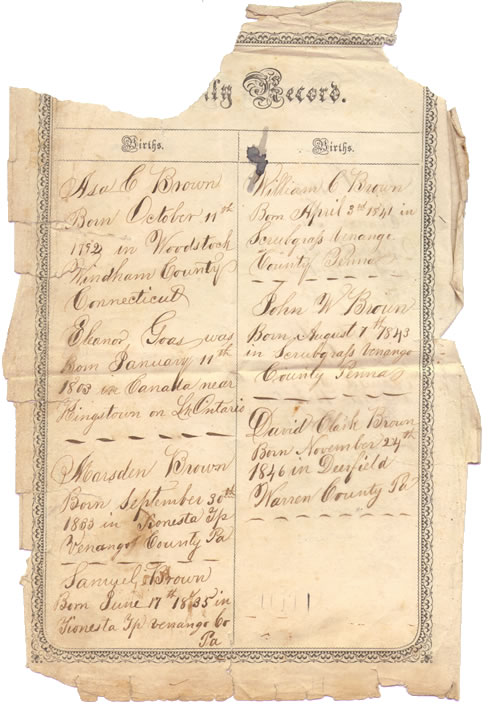 ily Record.
Births.
Asa C Brown
Born October 11th
1792 in Woodstock
Windham County
Connecticut
Eleanor Goas was
Born January 11th
1803 in Canada near
Kingstown on Lk Ontario
Marsden Brown
Born September 30th
1833 in Tionesta Tp
Venango County Pa
Samuel Brown
Born June 17th 1835 in
Tionesta Tp venango Co
Pa
Births.
William C Brown
Born April 3rd 1841 in
Scrubgrass Venango
County Penna
John W Brown
Born August 7th 1843
in Scrubgrass Venango
County Penna
David Clark Brown
Born November 24th
1846 in Deerfield
Warren County Pa